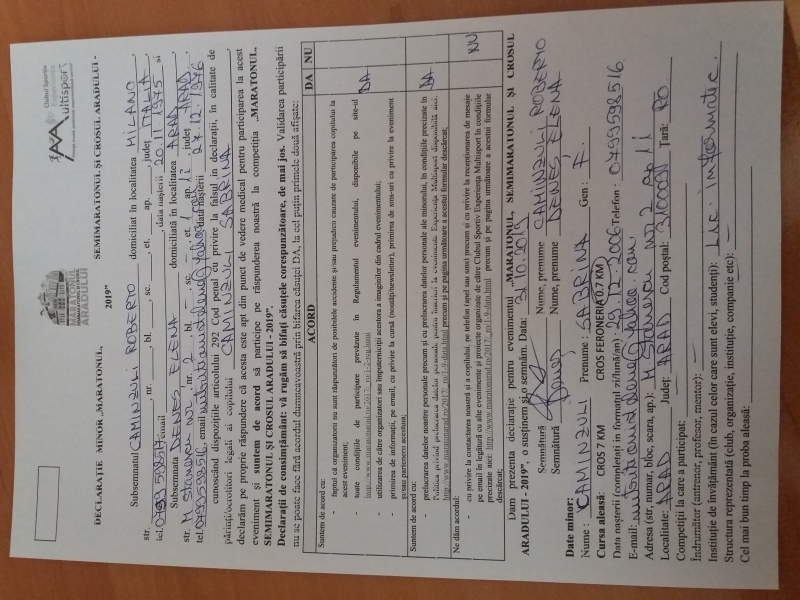 Clubul Sportiv
Experiența
Multisport
MARATONUL
ARADULUI
DECLARAȚIE MINOR „MARATONUL, SEMIMARATONUL ȘI CROSUL ARADULUI -
2019”
Subsemnatul CAMINZULI ROBERTO domiciliat în localitatea MILANO,
str. , nr. , bl. , sc. , et. , ap. , județ ITALIA,
tel. 0799 598517 email , data nașterii 20.11.1975 și
Subsemnata DENES ELENA domiciliată în localitatea ARAD,
str. M Stanescu nr. 2, bl. , sc. , et. 1 ap. 11 județ ARAD,
tel. 0799598516, email data nașterii 27.12.1976
cunoscând dispozițiile articolului 292 Cod penal cu privire la falsul în declarații, în calitate de
părinți/ocrotitori legali ai copilului CAMINZULI SABRINA,
declarăm pe proprie răspundere că acesta este apt din punct de vedere medical pentru participarea la acest
eveniment și suntem de acord să participe pe răspunderea noastră la competiția „MARATONUL,
SEMIMARATONUL ȘI CROSUL ARADULUI - 2019”.
Declarații de consimțământ: vă rugăm să bifați căsuțele corespunzătoare, de mai jos. Validarea participării
nu se poate face fără acordul dumneavoastră prin bifarea căsuței DA, la cel puțin primele două afișate:
ACORD DA NU
Suntem de acord cu:
- faptul că organizatorii nu sunt răspunzători de posibilele accidente și/sau prejudicii cauzate de participarea copilului la
acest eveniment;
- toate condițiile de participare prevăzute în Regulamentul evenimentului, disponibile pe site-ul
- utilizarea de către organizatori sau împuterniciții acestora a imaginilor din cadrul evenimentului; DA
- primirea de informații, pe email, cu privire la cursă (noutăți/newsletter), primirea de sms-uri cu privire la eveniment
și/sau partenerii acestuia;
Suntem de acord cu:
- prelucrarea datelor noastre personale precum și cu prelucrarea datelor personale ale minorului, în condițiile precizate în DA
precum și pe pagina următoare a acestui formular descărcat;
Ne dăm acordul:
- cu privire la contactarea noastră și a copilului, pe telefon (apel sau sms) precum și cu privire la recepționarea de mesaje NU
pe email în legătură cu alte evenimente și proiecte organizate de către Clubul Sportiv Experiența Multisport în condițiile
precizate aici: precum și pe pagina următoare a acestui formular
descărcat;
Dăm prezenta declarație pentru evenimentul „MARATONUL, SEMIMARATONUL ȘI CROSUL
ARADULUI - 2019”, o susținem și o semnăm. Data: 31.10.2019
Semnătură Nume, prenume CAMINZULI ROBERTO
Semnătură Denes Nume, prenume DENES ELENA
Date minor:
Nume : CAMINZULI Prenume : SABRINA Gen : F.
Cursa aleasă: CROS 7 KM CROS FERONERIA 0.7 KM
Data nașterii (completați în formatul zi/lună/an) : 29.12.2006 Telefon : 0799598516
E-mail:
Adresa (str, număr, bloc, scara, ap.): M Stanescu no 2 ap 11
Localitate: ARAD Județ: ARAD Cod poștal: 310009 Țară: RO.
Competiții la care a participat:
Îndrumător (antrenor, profesor, mentor):
Instituție de învățământ (în cazul celor care sunt elevi, studenți): Lic. informatic.
Structura reprezentată (club, organizație, instituție, companie etc):
Cel mai bun timp la proba aleasă: